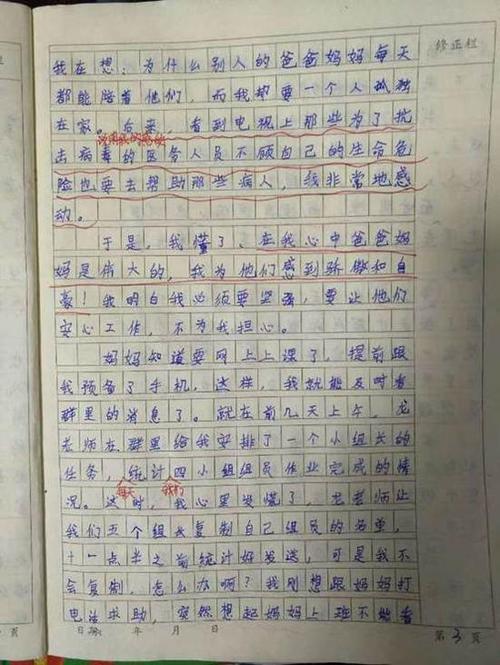 修正栏
我在想：为什么别人的爸爸妈妈每天
都能陪着他们，而我却要一个人孤独
在家。后来，看到电视上那些为了抗
击病毒的医务人员不顾自己的生命危
险也要去帮助那些病人，我非常地感
动。
于是，我懂了、在我心中爸爸妈
妈是伟大的，我为他们感到骄傲和自
豪！我明白我必须要坚强，要让他们
安心工作，不为我担心。
妈妈知道要网上上课了，提前跟
我预备了手机，这样，我就能及时看
群里的消息了。就在前几天上午，龙
老师在群里给我安排了一个小组长的
任务，统计四小组组员作业完成的情
每天 我们
况。这时，我心里发慌了，龙老师让
我们五个组长复制自己组员的名单，
十一点半之前统计好发送，可是我不
会复制，怎么办啊？我刚想跟妈妈打
电话求助，突然想起妈妈上班不能看
日期 年 月 日
第 3 页
页